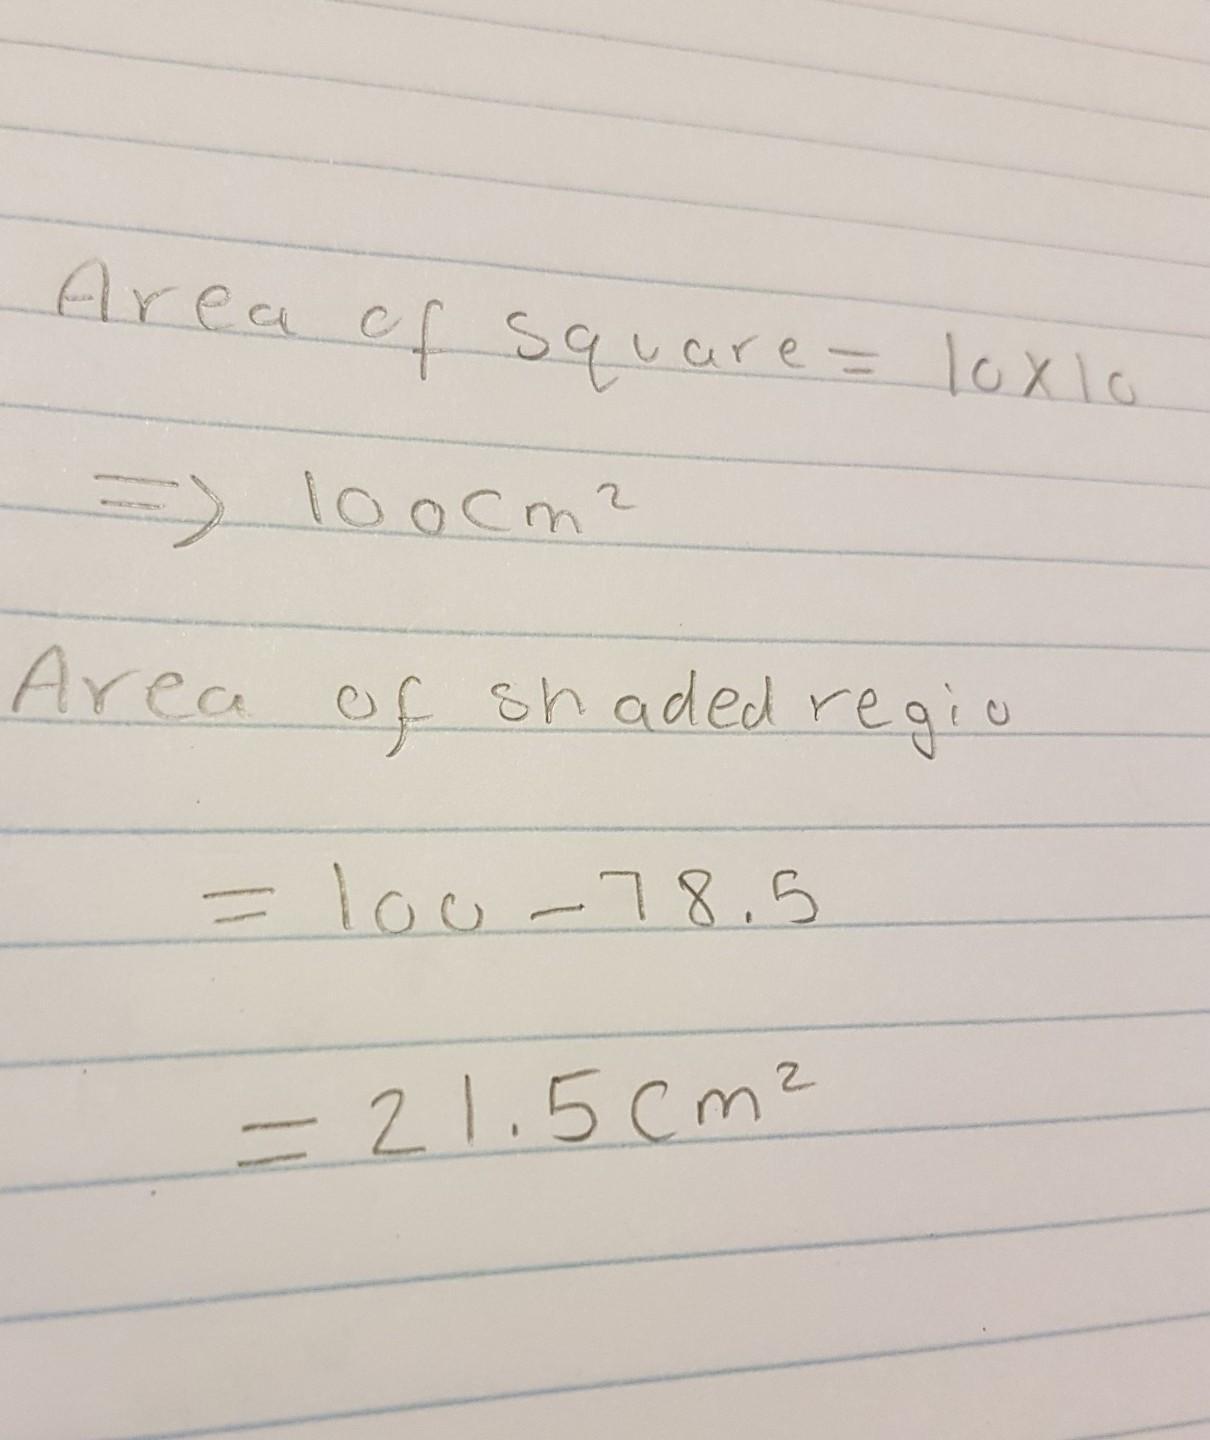 Area of square = 10x10
=> 100cm²
Area of shaded regio
= 100 - 78.5
= 21.5cm²